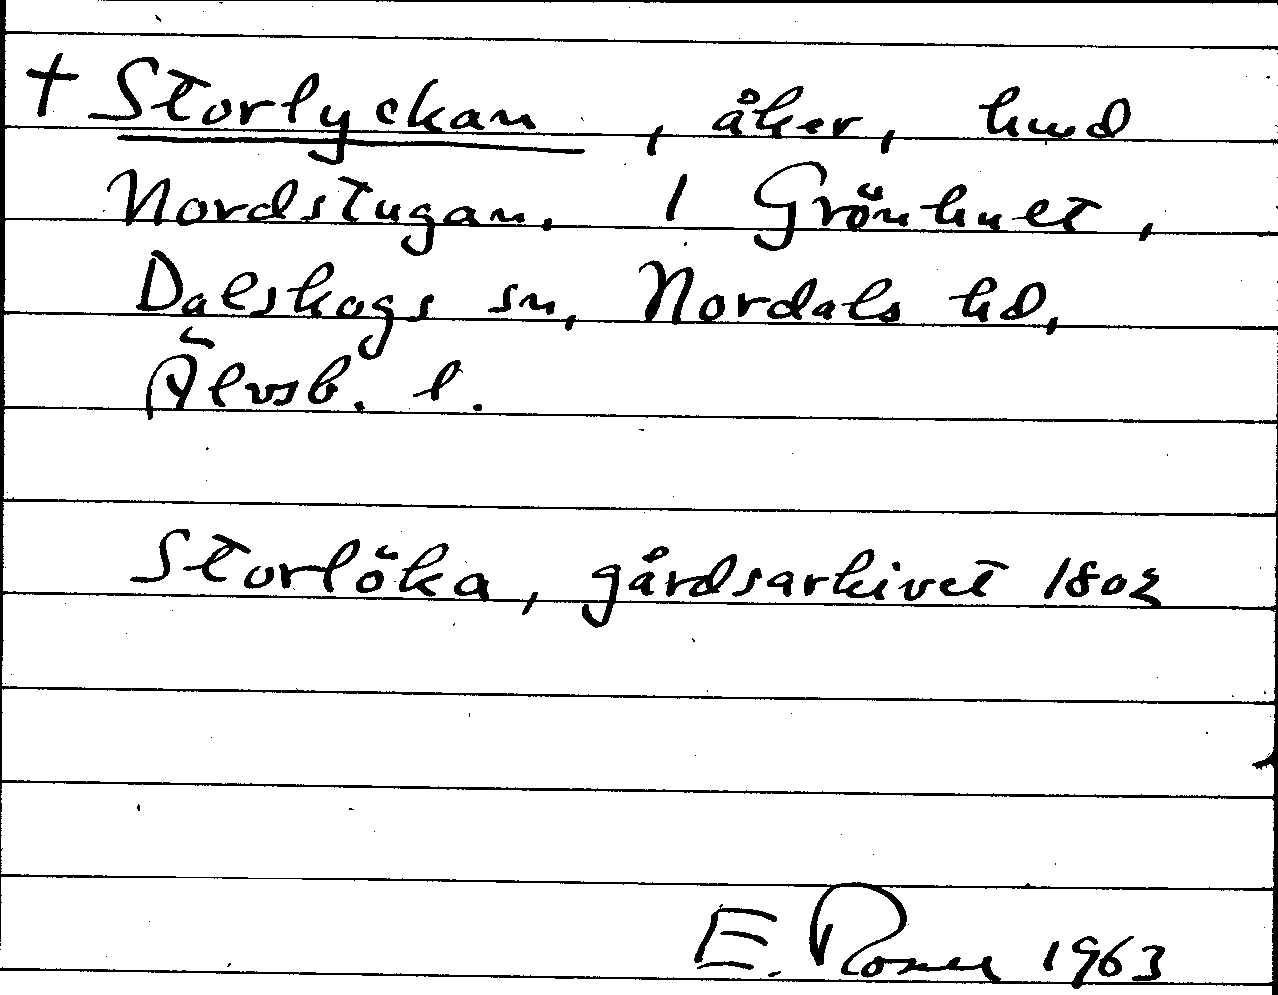 † Storlyckan, åker, hmd
Nordstugan. 1 Grönhult,
Dalskogs sn, Nordals hd,
Älvsb. l.
Storlöka, gårdsarkivet 1802
E. Rosell 1963